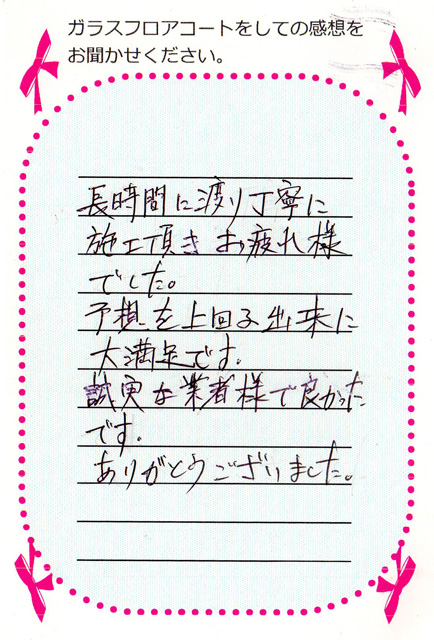 ガラスフロアコートをしての感想を
お聞かせください。
長時間に渡り丁寧に
施工頂きお疲れ様
でした。
予想を上回る出来に
大満足です。
誠実な業者様で良かった
です。
ありがとうございました。